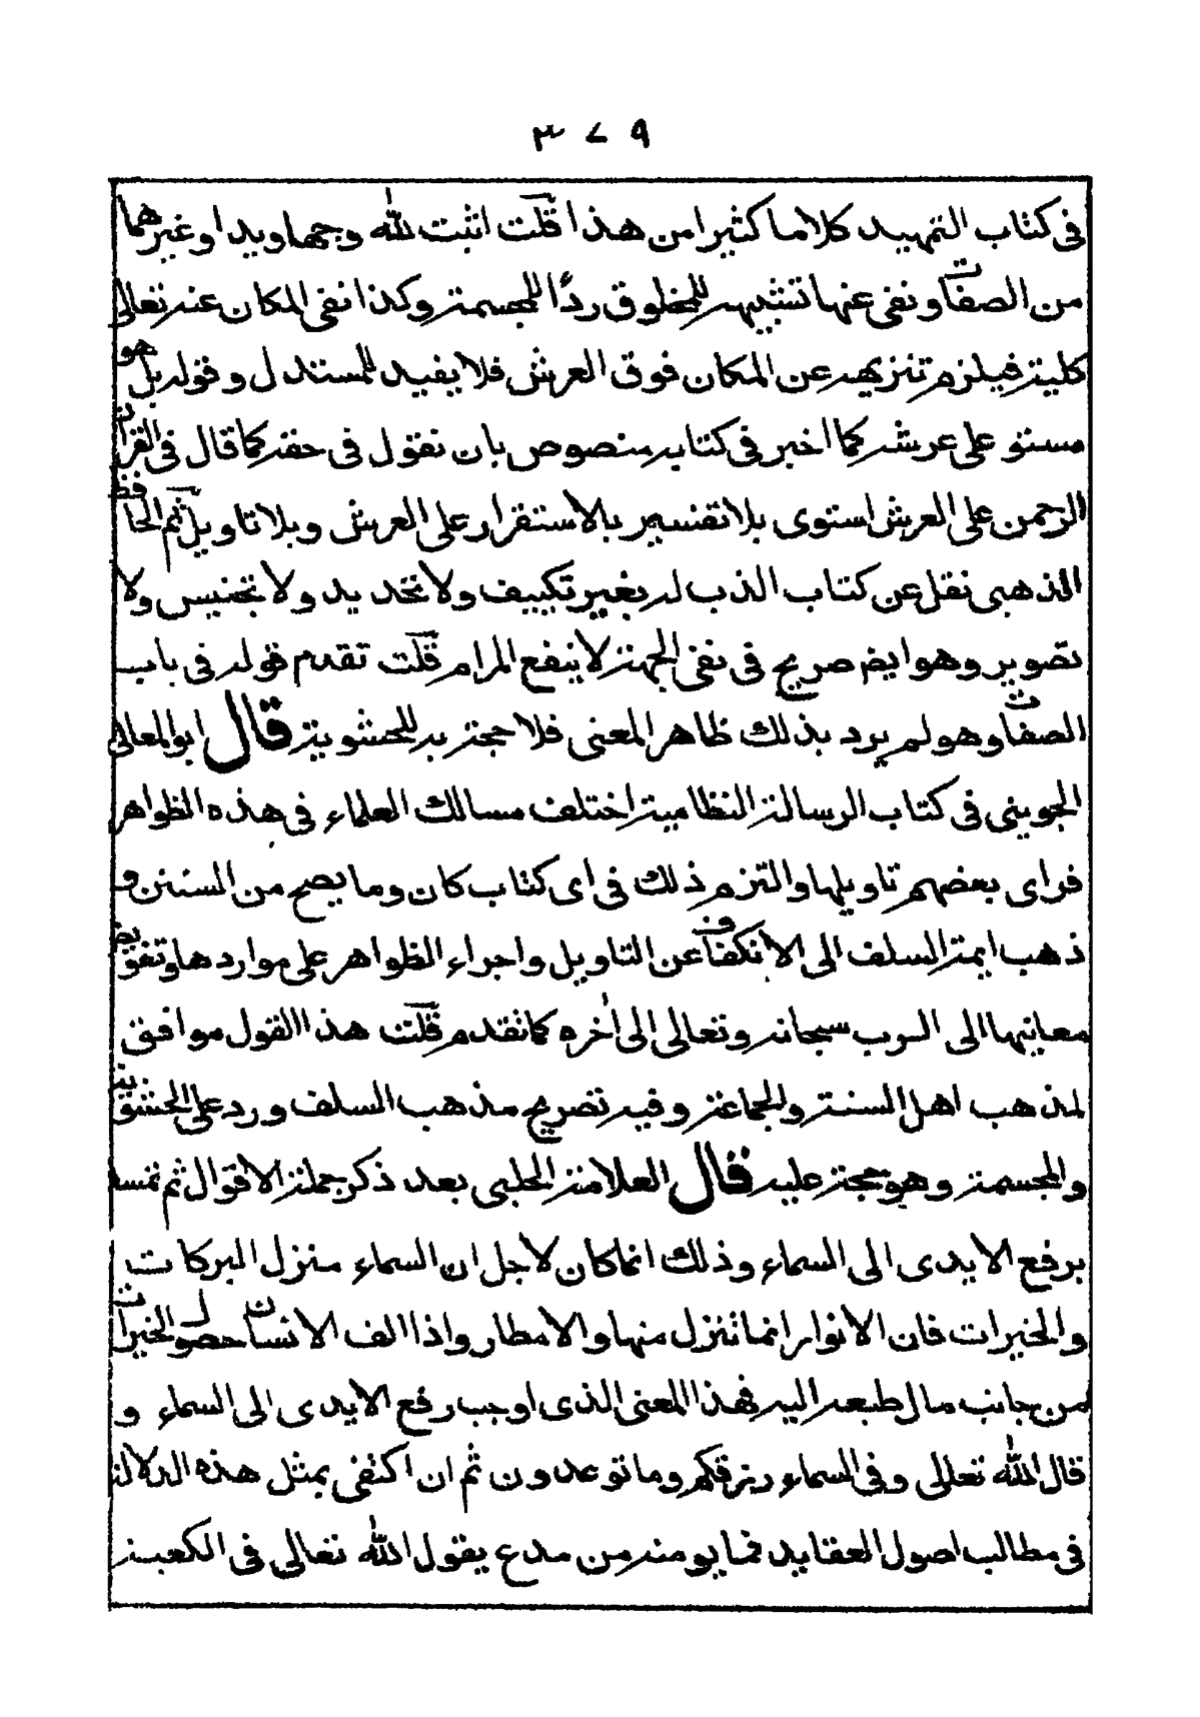 ٣٧٩
فى كتاب التمهيد كلاما كثيرا من هذا قلت اثبت لله وجها ويدا وغيرهما
من الصفات ونفى عنها تشبيهه للمخلوق ردًا للمجسمة وكذا نفى المكان عنه تعالى
كلية فيلزم تنزيهه عن المكان فوق العرش فلا يفيد للمستدل وقوله بل هو
مستو على عرشه كما اخبر فى كتابه منصوص بان نقول فى حقه كما قال فى القران
الرحمن على العرش استوى بلا تفسير بالاستقرار على العرش وبلا تاويل ثم الحافظ
الذهبى نقل عن كتاب الذب له بغير تكييف ولا تحديد ولا تجنيس ولا
تصوير وهو ايضا صريح فى نفى الجهة لا ينفع المرام قلت تقدم قوله فى باب
الصفات وهو لم يرد بذلك ظاهر المعنى فلا حجة به للحشوية قال ابو المعالى
الجوينى فى كتاب الرسالة النظامية اختلف مسالك العلماء فى هذه الظواهر
فراى بعضهم تاويلها والتزم ذلك فى اى كتاب كان وما يصح من السنن و
ذهب ايمة السلف الى الانكفاف عن التاويل واجراء الظواهر على مواردها وتفويض
معانيها الى الرب سبحانه وتعالى الى اٰخره كما تقدم قلت هذا القول موافق
لمذهب اهل السنة والجماعة وفيه تصريح مذهب السلف ورد على الحشوية
والمجسمة وهو حجة عليه قال العلامة الحلبى بعد ذكر جملة الاقوال ثم تمسه
برفع الايدى الى السماء وذلك انما كان لاجل ان السماء منزل البركات
والخيرات فان الانوار انما تنزل منها والامطار واذا الف الانسان حصول الخيرات
من جانب مال طبعه اليه فهذا المعنى الذى اوجب رفع الايدى الى السماء و
قال الله تعالى وفى السماء رزقكم وما توعدون ثم ان اكتفى بمثل هذه الدلالة
فى مطالب اصول العقايد فما يومنه من مدع يقول الله تعالى فى الكعبة